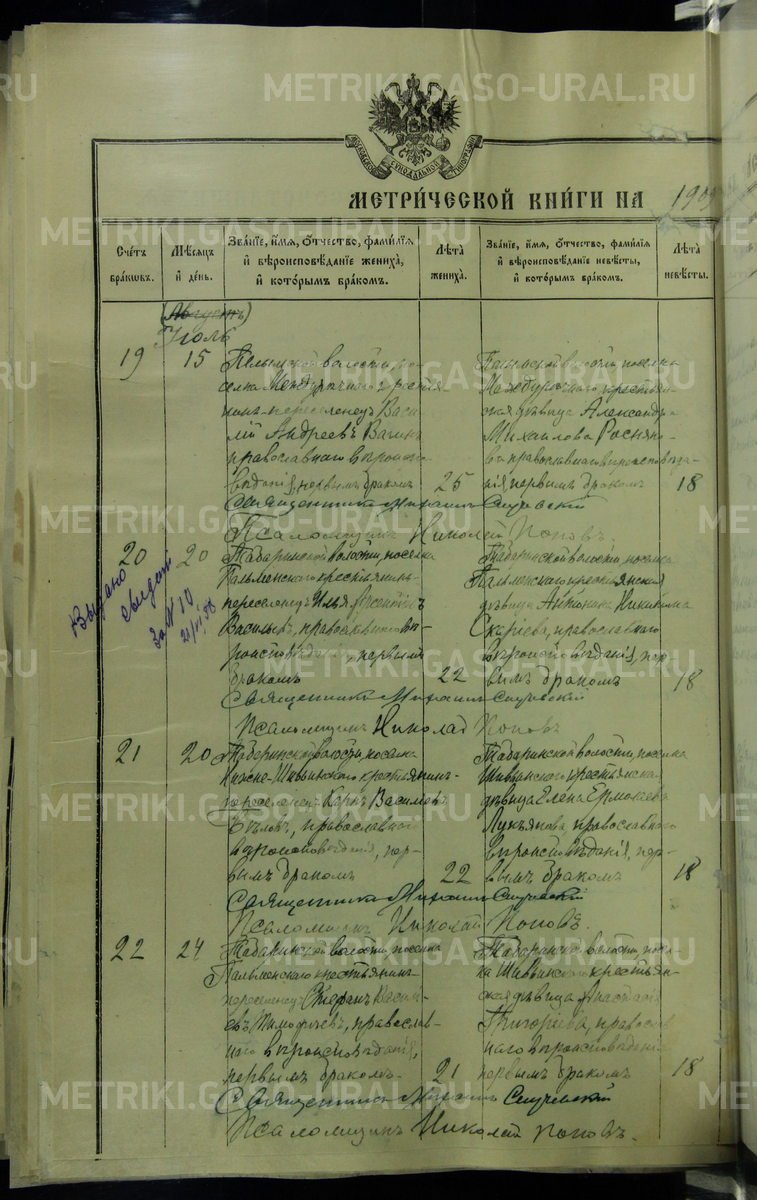 METRIKI.GASO-URAL.RU
МЕТРИ́ЧЕСКОЙ КНИ́ГИ НА 1909
Сче́тъ бра́ковъ.
Мѣ́сяцъ и҆ де́нь.
Зва́нїе, и҆́мя, ѻ҆́тчество, фами́лїя и҆ вѣроисповѣ́данїе жениха̀, и҆ кото́рымъ бра́комъ.
Лѣ́та жениха̀.
Зва́нїе, и҆́мя, ѻ҆́тчество, фами́лїя и҆ вѣроисповѣ́данїе невѣ́сты, и҆ кото́рымъ бра́комъ.
Лѣ́та невѣ́сты.
(Августъ)
Іюль
19
15
Пелымской волости, по-
селка Междурѣчнаго крестья
нинъ-переселенецъ Васи
лій Андреевъ Вагинъ
православнаго вѣроиспо
вѣданія, первымъ бракомъ
25
волости, поселка
Междурѣчнаго крестьян
ская дѣвица Александра
Михаилова
православнаго вѣроисповѣда
нія, первымъ бракомъ
18
Священникъ Михаилъ
Псаломщикъ Николай Поповъ.
Выдано
за № 10
20
20
Табаринской волости, поселка
Пальменского крестьянинъ
переселенецъ Илья Арсеніевъ
Васильевъ, православнаго вѣ
роисповѣданія, первымъ
бракомъ
22
Табаринской волости, поселка
Пальменского крестьянская
дѣвица Антонина Никитина
православнаго
вѣроисповѣданія, пер
вымъ бракомъ
18
Священникъ Михаилъ
Псаломщикъ Николай Поповъ
21
20
Табаринской волости, поселка
Нижне-Шиввинского крестьянинъ-
переселенецъ Карпъ Васильевъ
Бѣловъ, православнаго
вѣроисповѣданія, пер-
вымъ бракомъ
22
Табаринской волости, поселка
Шиввинского крестьянская
дѣвица Елена Ермолаева
Лукьянова, православнаго
вѣроисповѣданія, пер
вымъ бракомъ
18
Священникъ Михаилъ
Псаломщикъ Николай Поповъ.
22
24
Табаринской волости, поселка
Пальменского крестьянинъ-
переселенецъ Стефанъ Василь-
евъ Тимофѣевъ, православ-
наго вѣроисповѣданія,
первымъ бракомъ.
21
Табаринской волости, посел
ка Шиввинского крестьян-
ская дѣвица Анастасія
Григорьева, православ
наго вѣроисповѣданія
первымъ бракомъ
18
Священникъ Михаилъ
Псаломщикъ Николай Поповъ.